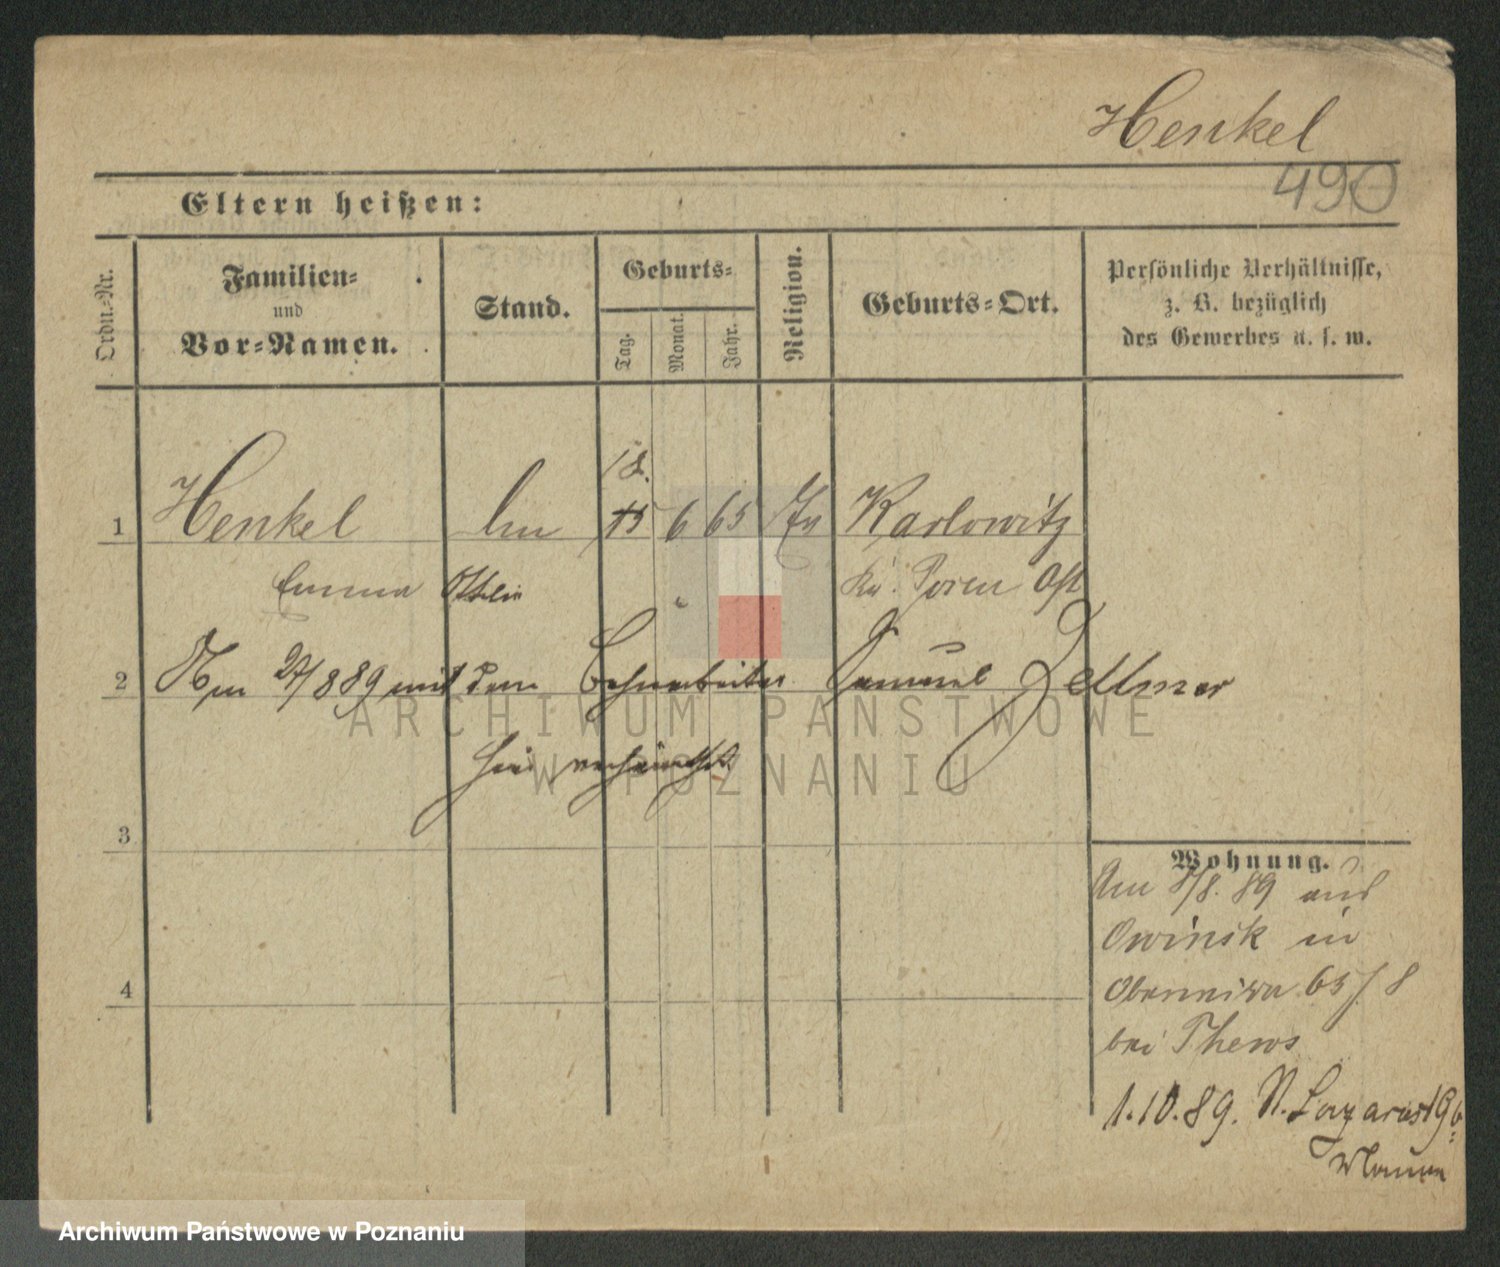 Henkel
490
Eltern heißen:
Ordn.-Nr.
Familien-
und
Vor-Namen.
Stand.
Geburts-
Tag.
Monat.
Jahr.
Religion.
Geburts-Ort.
Persönliche Verhältnisse,
z. B. bezüglich
des Gewerbes u. s. w.
18.
1 Henkel 15 6 65 Karlowitz
Emma Kr. Posen Ost
2 Am 27/8 89 mit dem Bahnarbeiter Samuel Zellmer
hier verheirathet
3
Wohnung.
Am 8/8. 89 aus
Owinsk in
Oberwilda 65 / 8
bei Thews
4
1.10.89. St. Lazarus 19 b
ARCHIWUM PAŃSTWOWE
W POZNANIU
Archiwum Państwowe w Poznaniu